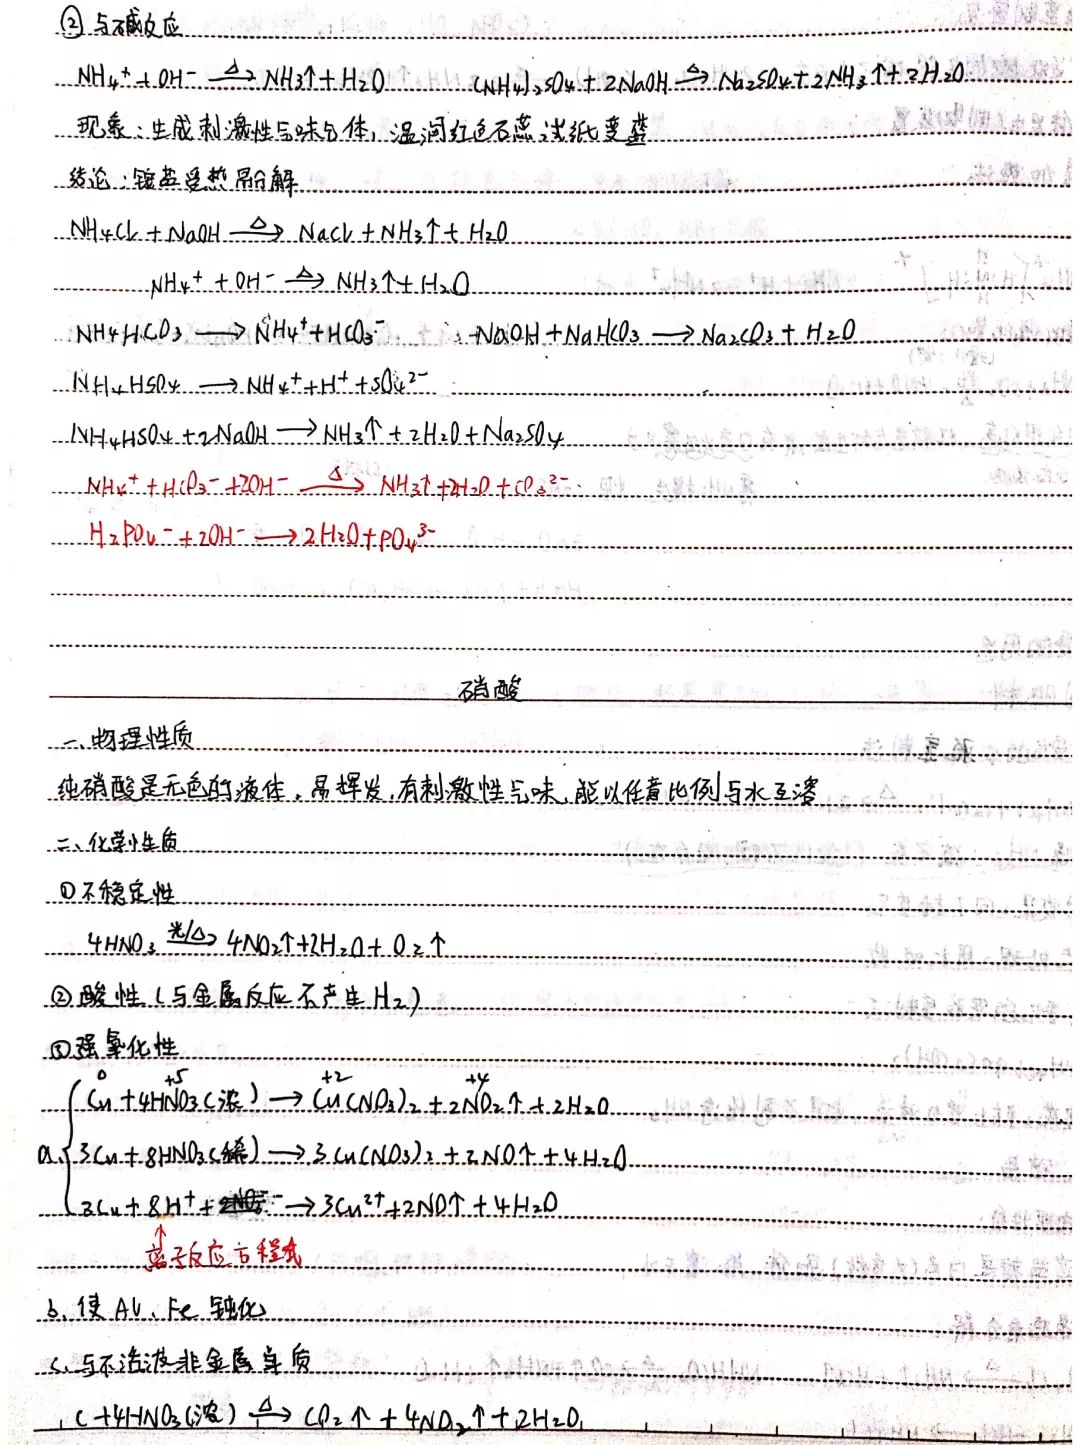 ② 与碱反应
NH₄⁺ + OH⁻ —△→ NH₃↑ + H₂O    (NH₄)₂SO₄ + 2NaOH —△→ Na₂SO₄ + 2NH₃↑ + 2H₂O
现象：生成刺激性气味气体，湿润红色石蕊试纸变蓝
结论：铵盐受热易分解
NH₄Cl + NaOH —△→ NaCl + NH₃↑ + H₂O
NH₄⁺ + OH⁻ —△→ NH₃↑ + H₂O
NH₄HCO₃ —→ NH₄⁺ + HCO₃⁻    NaOH + NaHCO₃ —→ Na₂CO₃ + H₂O
NH₄HSO₄ —→ NH₄⁺ + H⁺ + SO₄²⁻
NH₄HSO₄ + 2NaOH —→ NH₃↑ + 2H₂O + Na₂SO₄
NH₄⁺ + HCO₃⁻ + 2OH⁻ —△→ NH₃↑ + 2H₂O + CO₃²⁻
H₂PO₄⁻ + 2OH⁻ —→ 2H₂O + PO₄³⁻
硝酸
一、物理性质
纯硝酸是无色的液体，易挥发，有刺激性气味，能以任意比例与水互溶
二、化学性质
① 不稳定性
4HNO₃ —光/△→ 4NO₂↑ + 2H₂O + O₂↑
② 酸性（与金属反应不产生H₂）
③ 强氧化性
0 +5 +2 +4
Cu + 4HNO₃(浓) —→ Cu(NO₃)₂ + 2NO₂↑ + 2H₂O
a. 3Cu + 8HNO₃(稀) —→ 3Cu(NO₃)₂ + 2NO↑ + 4H₂O
3Cu + 8H⁺ + 2NO₃⁻ —→ 3Cu²⁺ + 2NO↑ + 4H₂O
离子反应方程式
b. 使Al、Fe 钝化
c. 与不活泼非金属单质
C + 4HNO₃(浓) —△→ CO₂↑ + 4NO₂↑ + 2H₂O